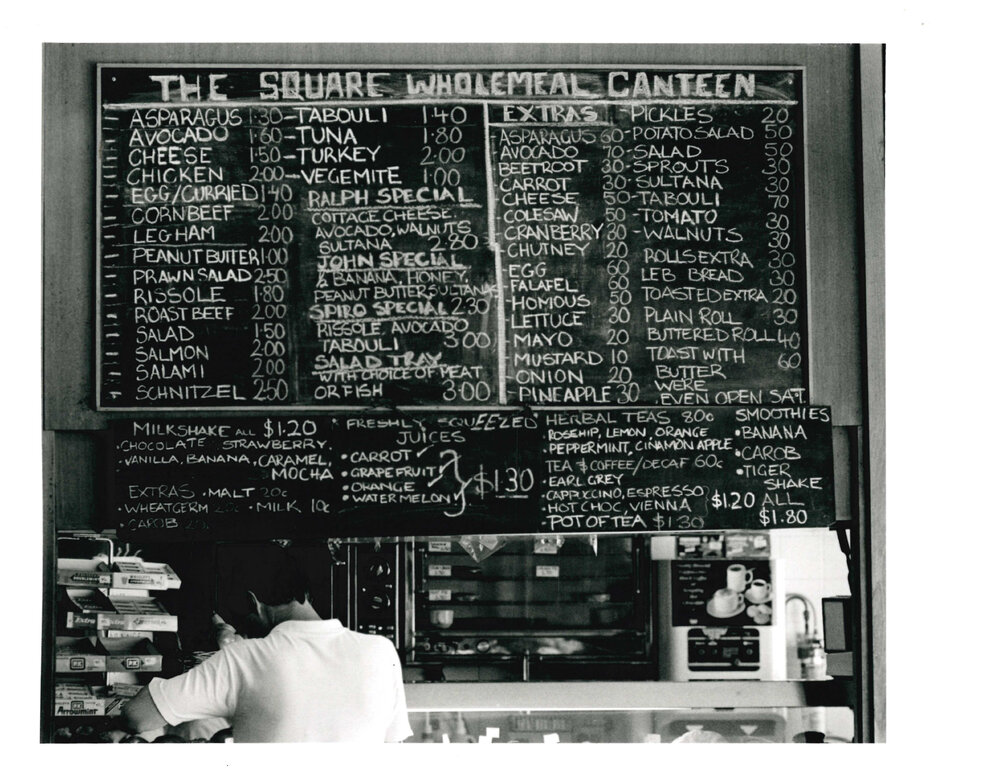 THE SQUARE WHOLEMEAL CANTEEN
ASPARAGUS 1·30
AVOCADO 1·60
CHEESE 1·50
CHICKEN 2·00
EGG/CURRIED 1·40
CORNBEEF 2.00
LEGHAM 2.00
PEANUT BUTTER 1·00
PRAWN SALAD 2·50
RISSOLE 1·80
ROAST BEEF 2.00
SALAD 1·50
SALMON 2.00
SALAMI 2.00
SCHNITZEL 2.50
TABOULI 1·40
TUNA 1·80
TURKEY 2.00
VEGEMITE 1.00
RALPH SPECIAL
COTTAGE CHEESE.
AVOCADO, WALNUTS
SULTANA 2.80
JOHN SPECIAL
BANANA, HONEY,
PEANUT BUTTER SULTANAS
2·30
SPIRO SPECIAL
RISSOLE, AVOCADO
TABOULI 3.00
SALAD TRAY
WITH CHOICE OF MEAT
OR FISH 3.00
EXTRAS
ASPARAGUS 60
AVOCADO 70
BEETROOT 30
CARROT 30
CHEESE 50
COLESAW 50
CRANBERRY 30
CHUTNEY 20
EGG 60
FALAFEL 60
HOMOUS 50
LETTUCE 30
MAYO 20
MUSTARD 10
ONION 20
PINEAPPLE 30
PICKLES 20
POTATO SALAD 50
SALAD 50
SPROUTS 30
SULTANA 30
TABOULI 70
TOMATO 30
WALNUTS 30
ROLLS EXTRA 30
LEB BREAD 30
TOASTED EXTRA 20
PLAIN ROLL 30
BUTTERED ROLL 40
TOAST WITH 60
BUTTER
WERE
EVEN OPEN SAT.
MILKSHAKE ALL $1.20
CHOCOLATE STRAWBERRY,
VANILLA, BANANA, CARAMEL,
MOCHA
EXTRAS · MALT 20c
· WHEATGERM · MILK 10c
· CAROB
* FRESHLY SQUEEZED
JUICES
• CARROT
• GRAPEFRUIT
• ORANGE
• WATERMELON
$1.30
HERBAL TEAS 80c
• ROSEHIP, LEMON, ORANGE
• PEPPERMINT, CINAMON APPLE
TEA & COFFEE/DECAF 60c
• EARL GREY
CAPPUCCINO, ESPRESSO
• HOT CHOC, VIENNA $1.20
• POT OF TEA $1.30
SMOOTHIES
• BANANA
• CAROB
• TIGER
SHAKE
ALL
$1.80
Extra
PK
PK
Arrowmint